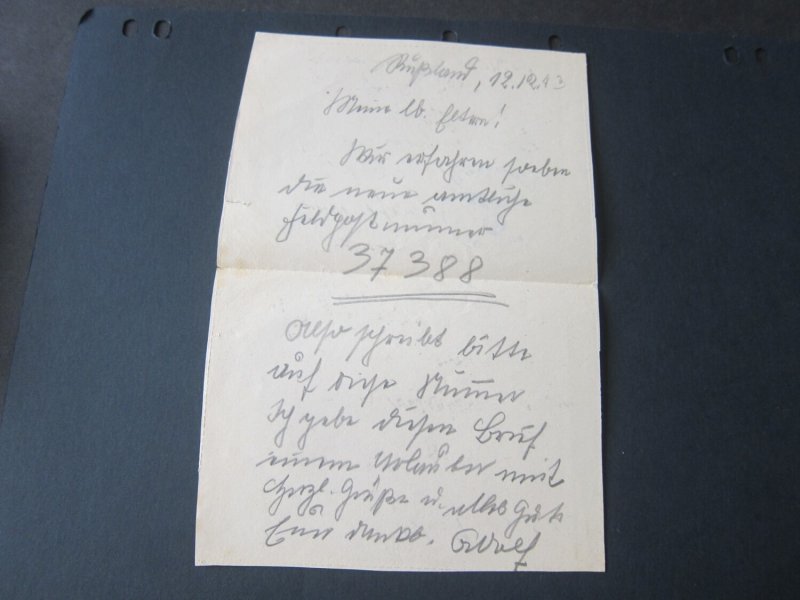 Rußland, 12.12.43
Meine lb. Eltern!
Wir erfahren soeben
die neue amtliche
Feldpostnummer
37388
Also schreibt bitte
auf diese Nummer
Ich gebe diesen Brief
einem Urlauber mit
Herzl. Grüße u. alles Gute
Euer dankb. Adolf